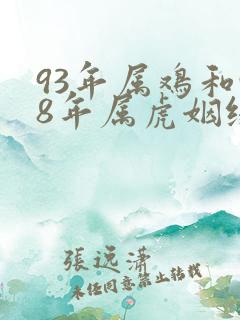 93年属鸡和
8年属虎姻缘
張逸潇
未经同意禁止转载